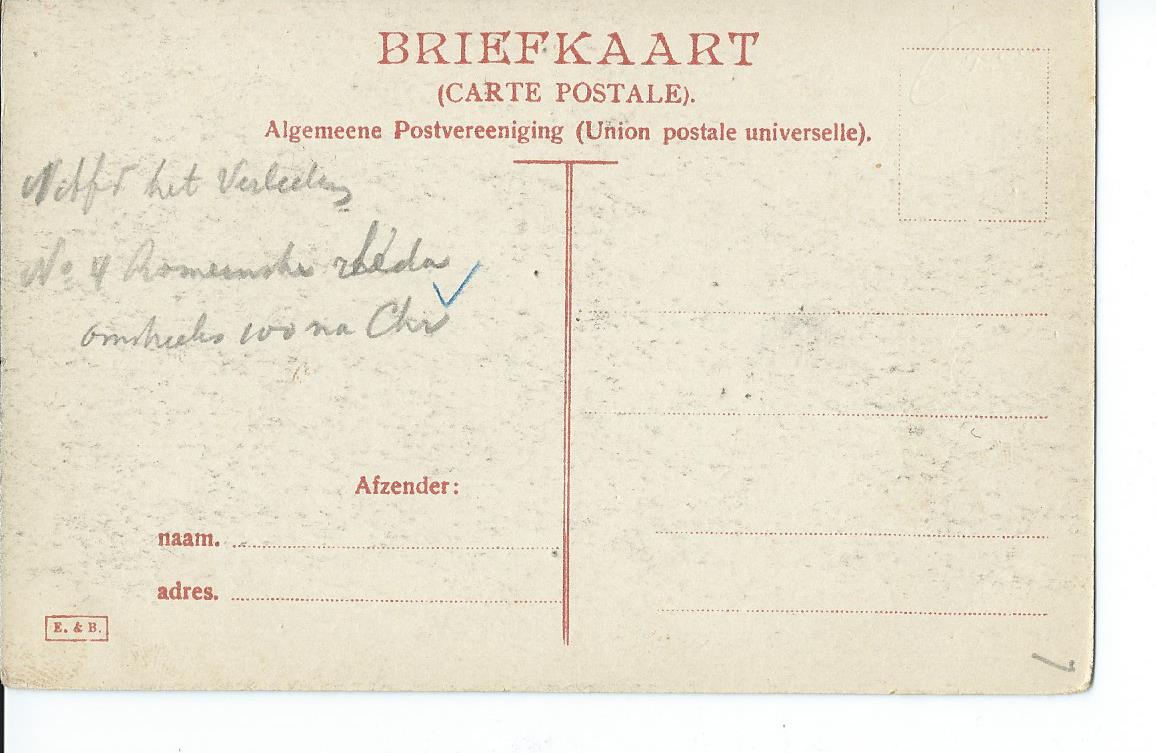 BRIEFKAART
(CARTE POSTALE).
Algemeene Postvereeniging (Union postale universelle).
het Verleden
No 4 Romeinsche rheda
omstreeks 100 na Chr
Afzender:
naam.
adres.
E. & B.